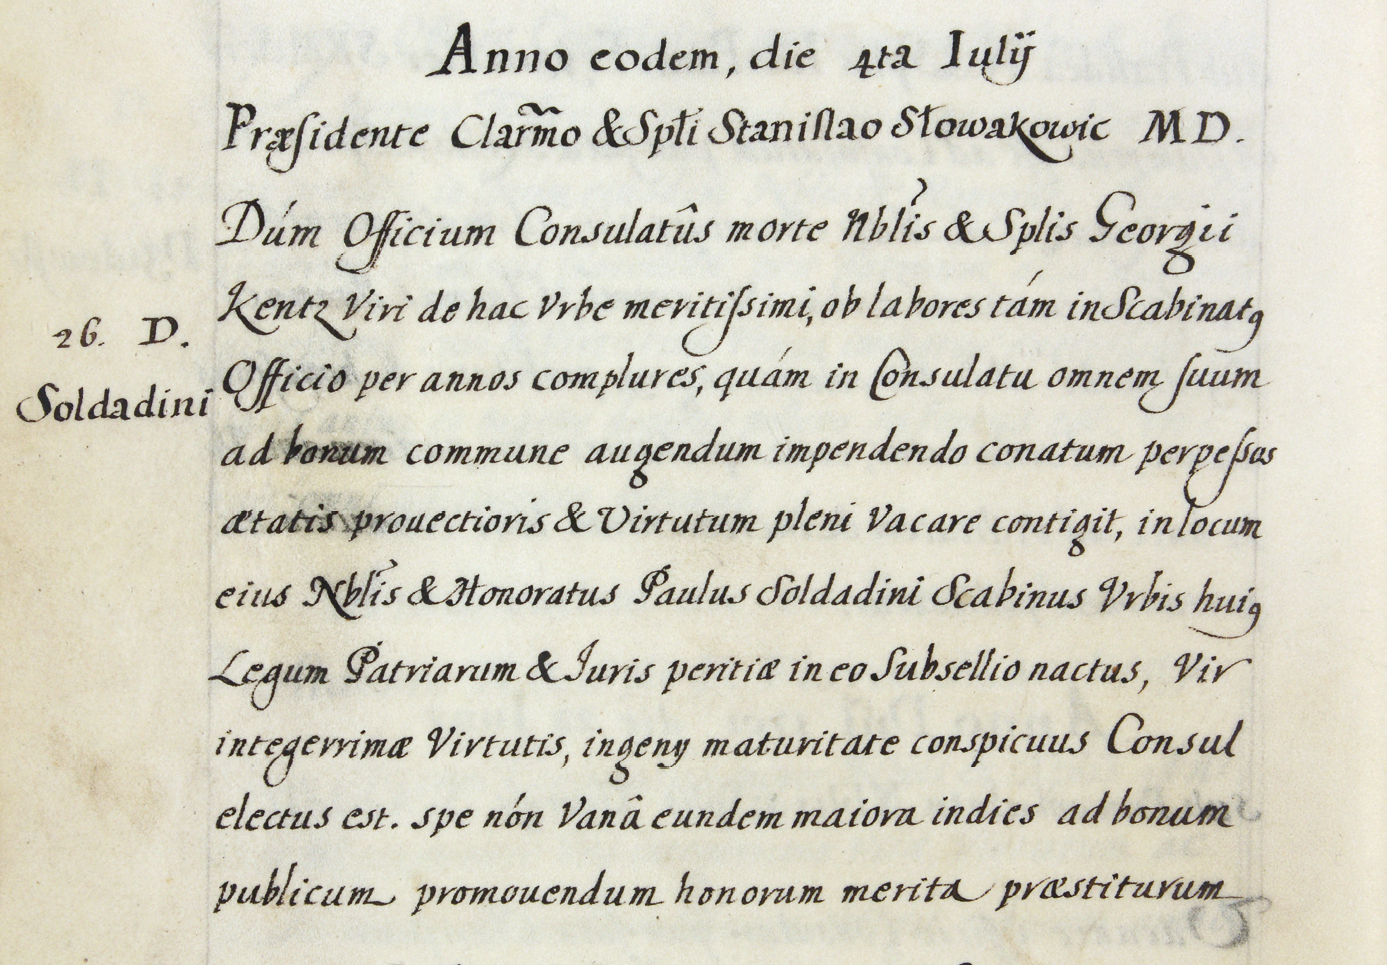 Anno eodem, die 4ta Iulÿ
Præſidente Clarm̃o & Spłi Staniſlao Słowakowic MD.
Dúm Officium Consulatûs morte Nblis & Splis Georgii
Kentz Viri de hac Vrbe meritiſsimi, ob labores tám in Scabinatꝰ
26. D.
Officio per annos complures, quám in Consulatu omnem ſuum
Soldadini
ad bonum commune augendum impendendo conatum perpeſsos
ætatis prouectioris & Virtutum pleni Vacare contigit, in locum
eius Nblis & Honoratus Paulus Soldadini Scabinus Vrbis huiꝰ
Legum Patriarum & Juris peritiæ in eo Subsellio nactus, Vir
integerrimæ Virtutis, ingeny maturitate conspicuus Consul
electus est. spe nón Vanâ eundem maiora indies ad bonum
publicum promouendum honorum merita præstiturum